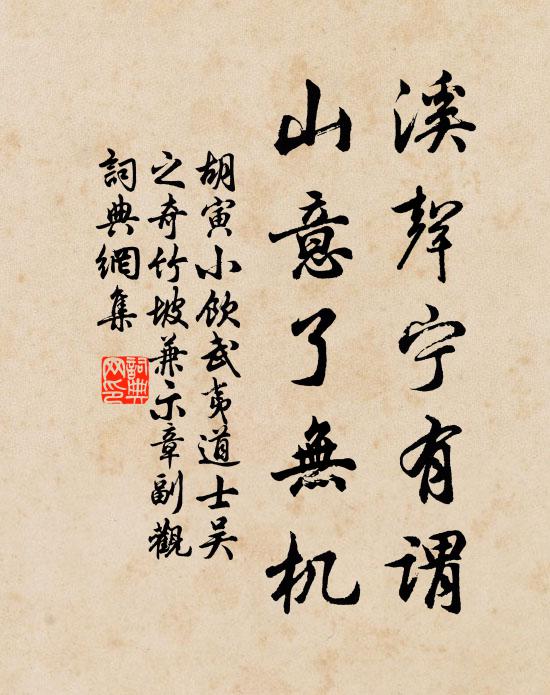 溪聲宁有谓
山意了無机
胡寅小飲武夷道士吴
之奇竹坡兼示章副觀
詞典網集
詞典网印